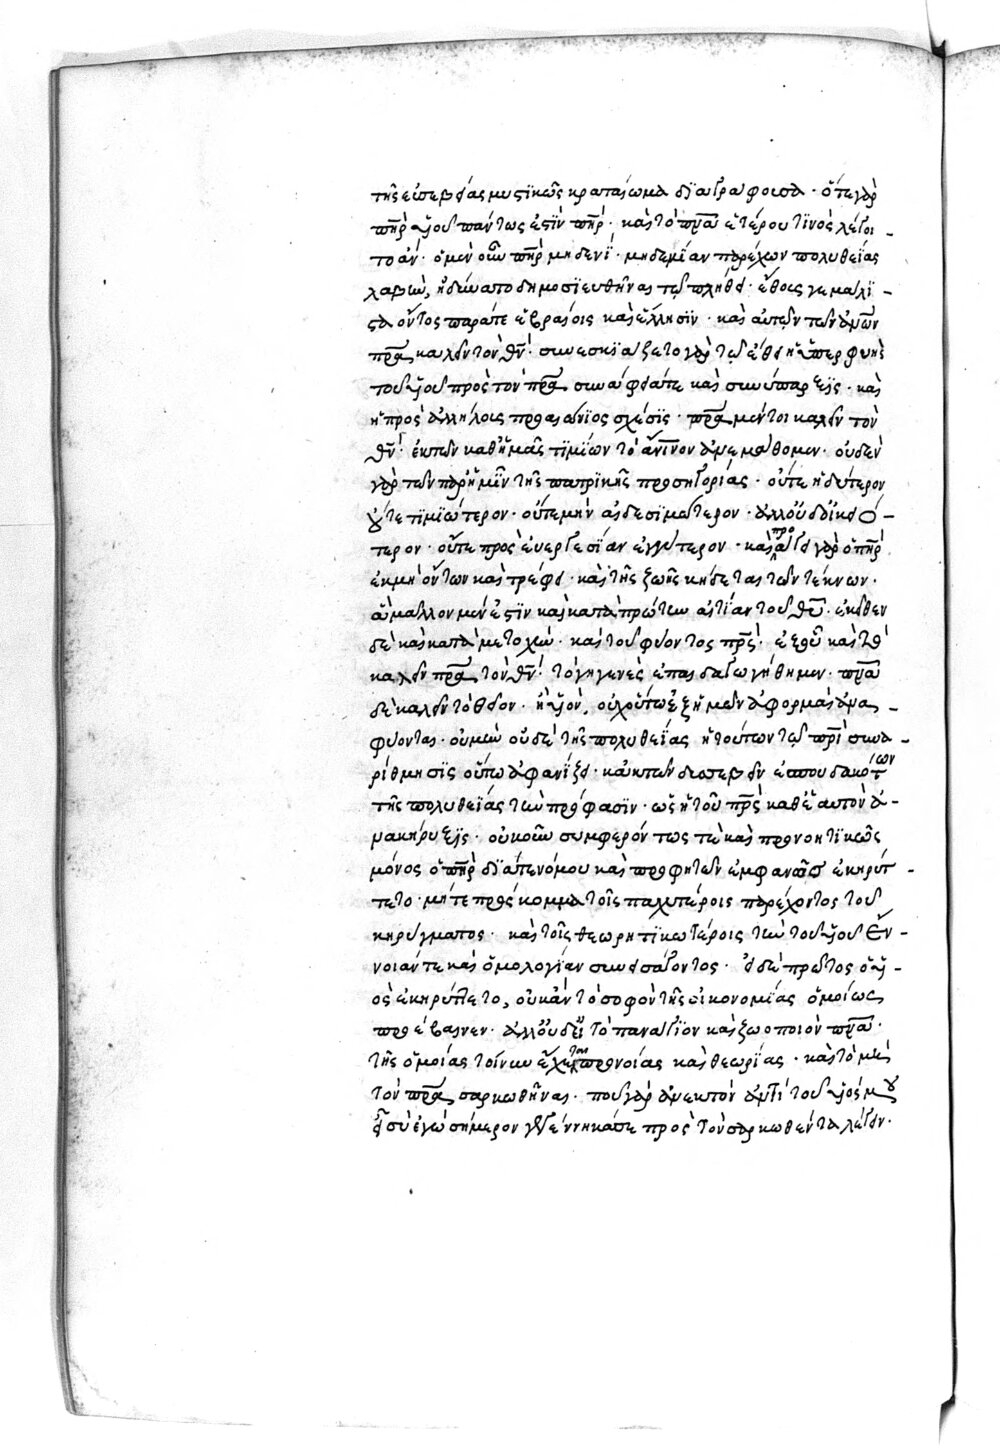 τῆς εὐσεβείας μυστικῶς κραταίωμα διαγράφουσα · ὅτε γὰρ
πῆρ υἱοῦ πάντως ἐστὶν πῆρ · καὶ τὸ πνα ἑτέρου τινὸς λέγοι-
το ἄν · ὁ μὲν οὖν πῆρ μηδενὶ · μηδεμίαν παρέχων πολυθεΐας
λαβὴν, ἠδύνατο δημοσιευθῆναι τῷ πλήθει · ἔθους γε μάλι-
στα ὄντος παρά τε ἑβραίοις καὶ ἕλλησιν · καὶ αὐτῶν τῶν
πρα καλεῖν τὸν θν · συνεσκίαζε τὸ γὰρ τῷ ἔθει ἡ ὑπερφυὴς
τοῦ υἱοῦ πρὸς τὸν πρα συνάφειά τε καὶ συνύπαρξις · καὶ
ἡ πρὸς ἀλλήλους προαιώνιος σχέσις · πρα μέντοι καλεῖν τὸν
θν · ἐκ τῶν καθ ἡμᾶς τιμίων τὸ ἀνινον ἀνεμάθομεν · οὐδὲν
γὰρ τῶν παρ ἡμῖν τῆς πατρικῆς προσηγορίας · οὔτε ἡδύτερον
οὔτε τιμιώτερον · οὔτε μὴν αἰδεσιμώτερον · ἀλλ οὐδ οἰκειό-
τερον · οὔτε πρὸς εὐεργεσίαν ἐγγύτερον · καὶ προάγει γὰρ ὁ πῆρ
ἐκ μὴ ὄντων καὶ τρέφει · καὶ τῆς ζωῆς κήδεται τῶν τέκνων ·
ἃ μᾶλλον μέν ἐστιν καὶ κατὰ πρώτην αἰτίαν τοῦ θυ · ἐκεῖθεν
δὲ καὶ κατὰ μετοχὴν · καὶ τοῦ φύοντος πρς · ἐξ οὗ καὶ τὸ
καλεῖν πρα τὸν θν · τὸ γηγενὲς ἐπαιδαγωγήθημεν · πνα
δὲ καλεῖν τὸ θεῖον · ἢ υἱὸν, οὐχ οὕτω ἐξ ἡμῶν ἀφορμὰς ἀνα-
φύονται · οὐ μὴν οὐδὲ τῆς πολυθεΐας ἡ τούτων τῷ πρὶ συνα-
ρίθμησις οὕτω ἀφανίζει · κἀκ τῶν δυσσεβεῖν ἐσπουδακότων
τῆς πολυθεΐας τὴν πρόφασιν · ὡς ἡ τοῦ πρς καθ ἑαυτὸν ἀ-
νακήρυξις · οὐκοῦν συμφερόντως τε καὶ προνοητικῶς
μόνος ὁ πῆρ διά τε νόμου καὶ προφητῶν ἐμφανῶς ἐκηρύτ-
τετο · μήτε πρόσκομμα τοῖς παχυτέροις παρέχοντος τοῦ
κηρύγματος · καὶ τοῖς θεωρητικωτέροις τὴν τοῦ υἱοῦ ἔν-
νοιάν τε καὶ ὁμολογίαν συνεισάγοντος · εἰ δὲ πρῶτος ὁ υἱ-
ὸς ἐκηρύττετο, οὐκ ἂν τὸ σοφὸν τῆς οἰκονομίας ὁμοίως
προέβαινεν · ἀλλ οὐδ εἰ τὸ παναγίον καὶ ζωοποιὸν πνα ·
τῆς ὁμοίας τοίνυν εἴχετο προνοίας καὶ θεωρίας · καὶ τὸ μὴ
τὸν πρα σαρκωθῆναι · ποῦ γὰρ ἀνεκτὸν ἀντὶ τοῦ υἱός μου
εἶ σὺ ἐγὼ σήμερον γεγέννηκά σε πρὸς τὸν σαρκωθέντα λέγειν ·